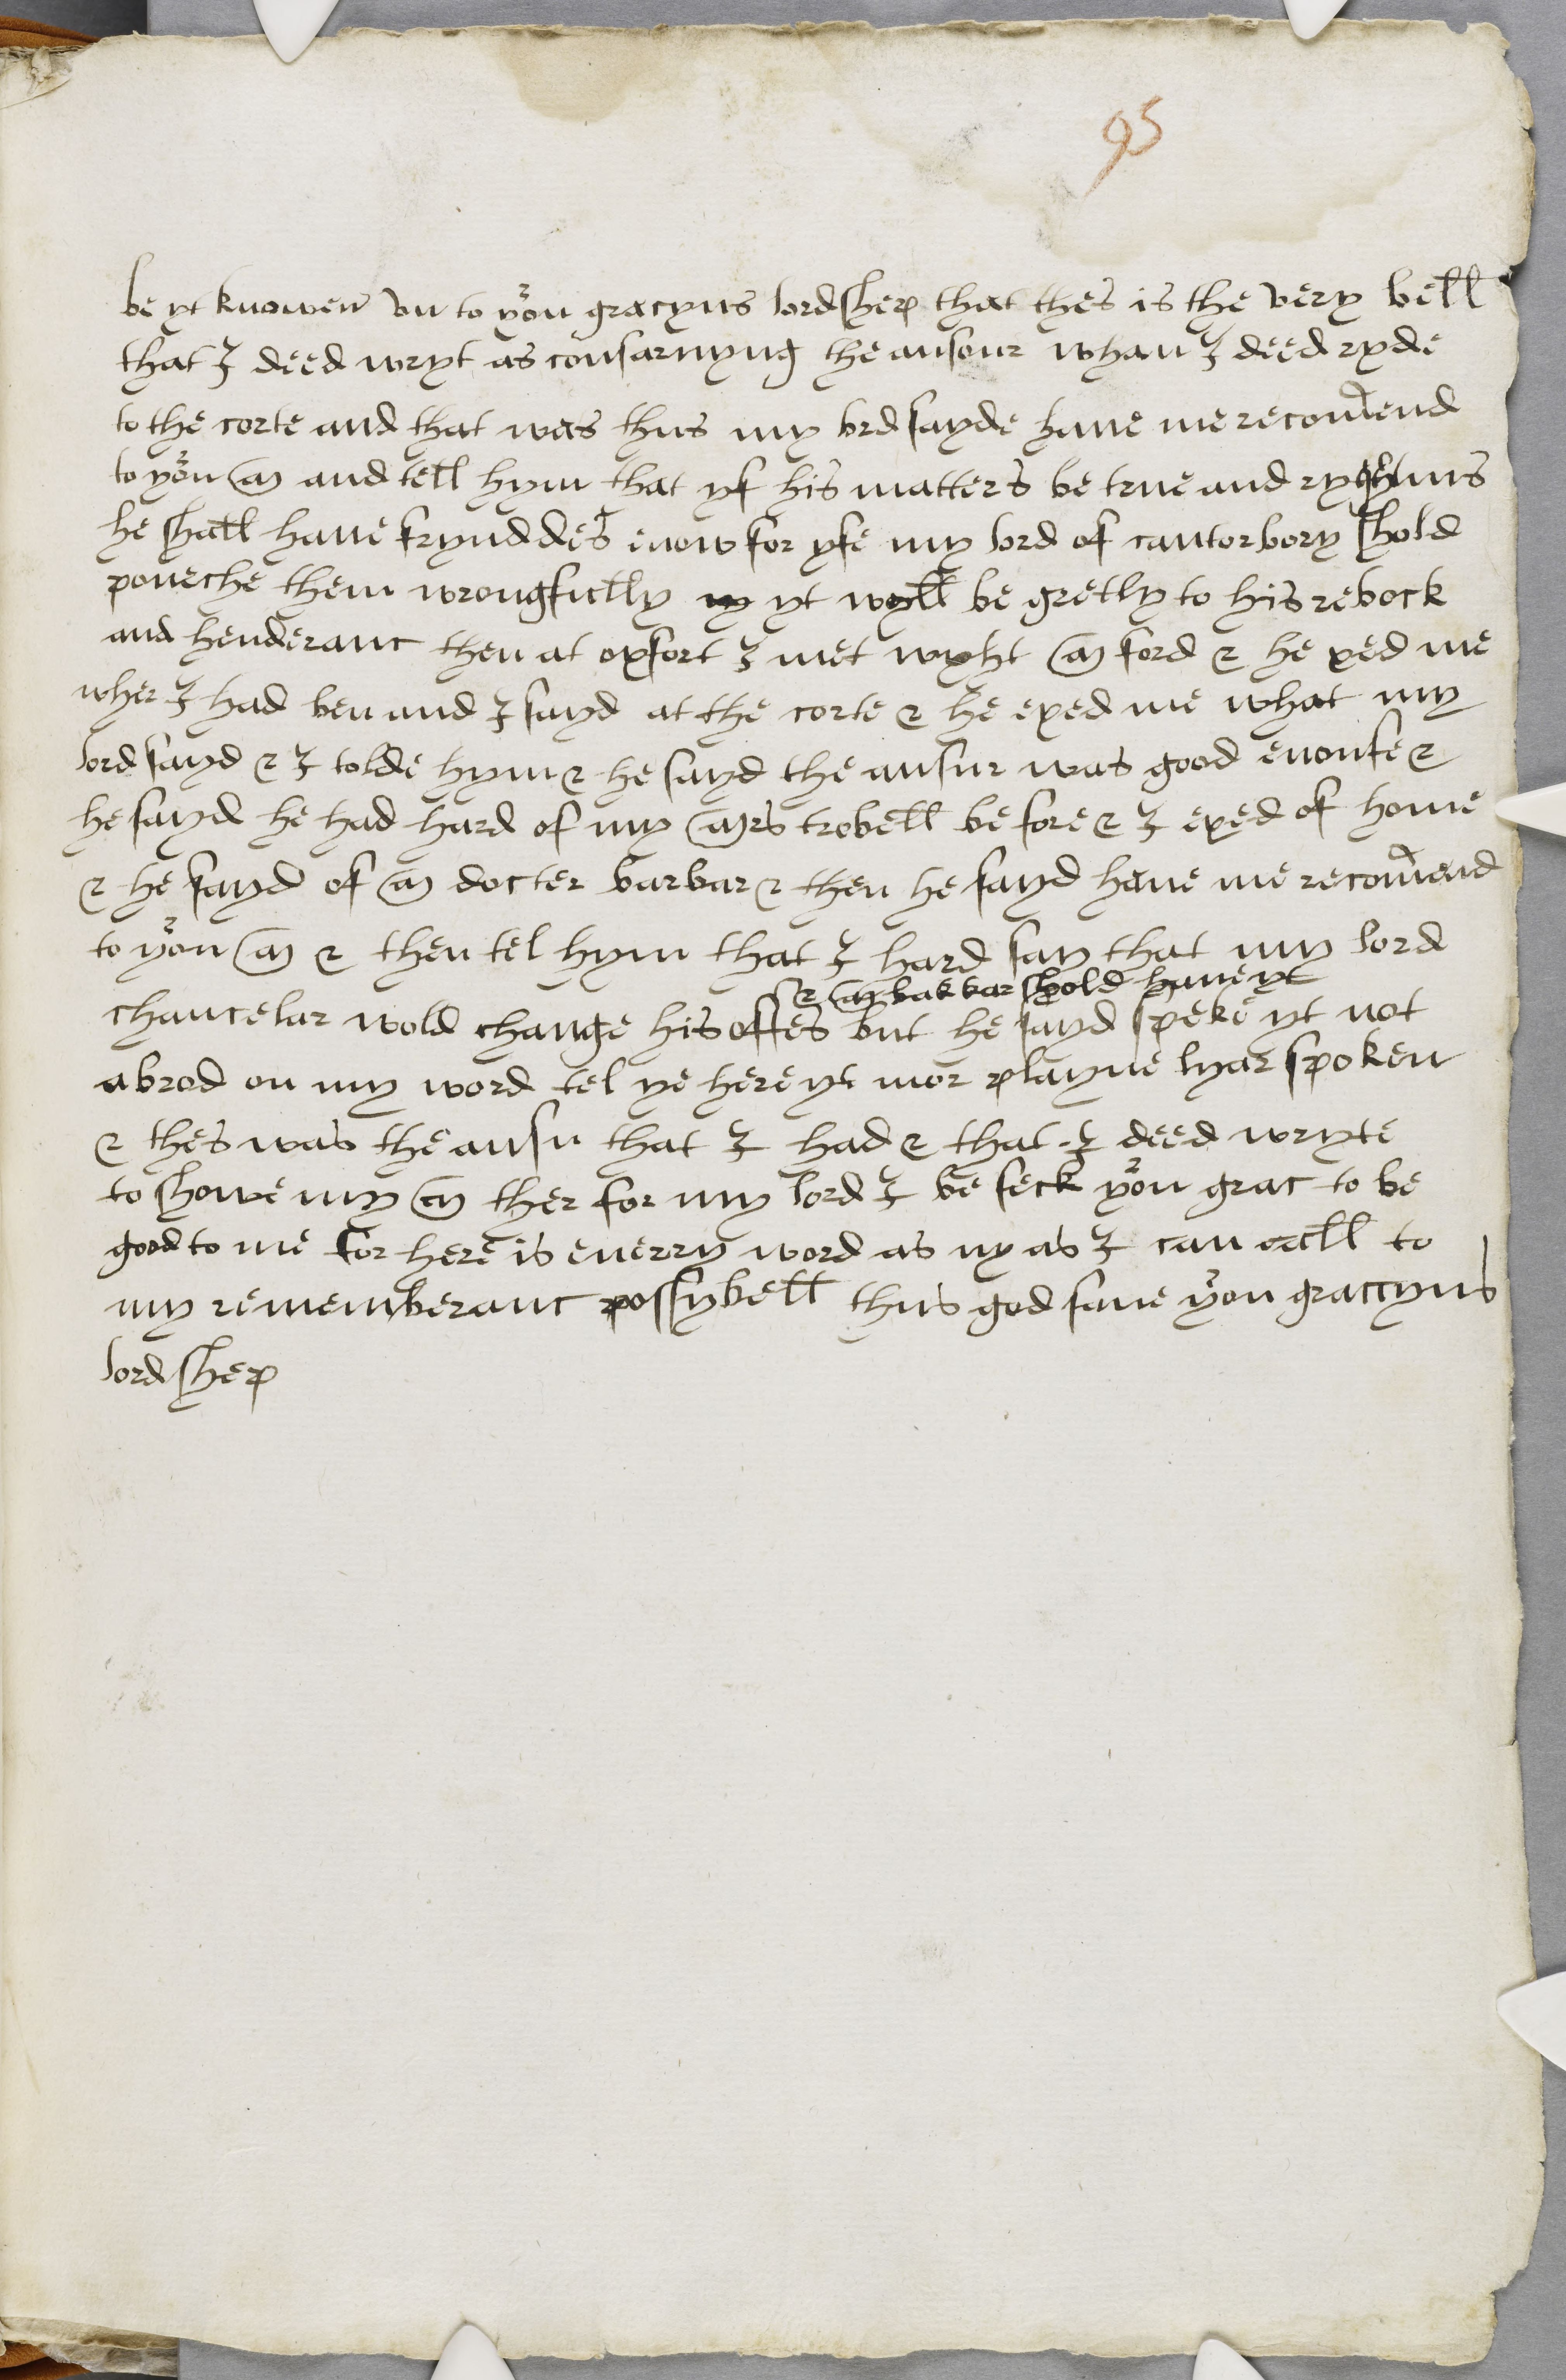 95
be yt knowen vn to yor gracyus lordshep that thes is the very bell
that I deed wryt as consarnyng the ansour whan I deed ryde
to the corte and that was thus my lord sayde have me recommend
to yor m and tell hym that yf his matters be true and ryghtus
he shall have frynddes enow for yfe my lord of cantorbory shold
poneche them wrongfully yt wyll be gretly to his rebock
and henderanc then at oxfort I met wyht m ford & he xed me
wher I had ben and I sayd at the corte & he exed me what my
lord sayd & I tolde hym & he sayd the ansur was good enoufe &
he sayd he had hard of my mrs trobell be fore & I exed of home
& he sayd of m docter barbar & then he sayd have me recommend
to yor m & then tel hym that I hard say that my lord
& m barbar shold have yt
chancelar wold change his offes but he sayd speke yt not
abrod on my word tel ye here yt mor playne lyar spoken
& thes was the ansu that I had & that I deed wryte
to showe my m ther for my lord I be seck yor grac to be
good to me for here is everry word as ny as I can call to
my rememberanc possybell thus god save yor graccyus
lordshep